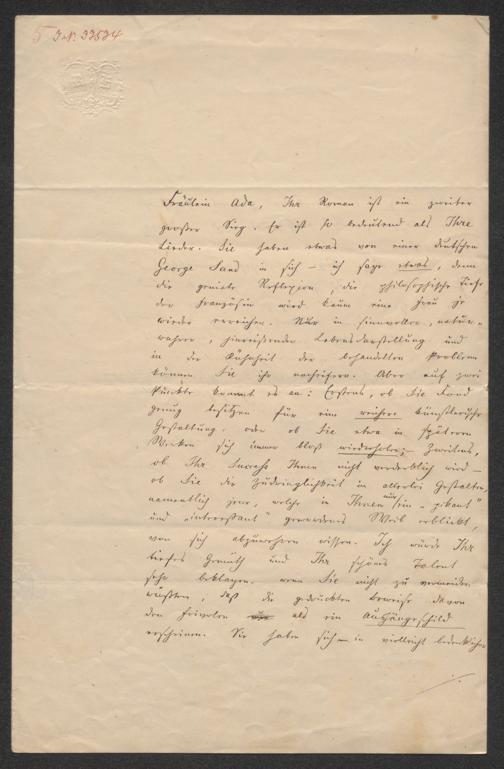 5 I.N. 33534
Fräulein Ada, Ihr Roman ist ein zweiter
großer Sieg. Er ist so bedeutend als Ihre
Lieder. Sie haben etwas von einer deutschen
George Sand in sich – ich sage etwas, denn
die geniale Reflexion, die philosophische Tiefe
der Französin wird kaum eine Frau je
wieder erreichen. Nur in sinnvoller, natur-
wahrer, hinreißender Lebensdarstellung und
in der Kühnheit der behandelten Probleme
können Sie ihr nacheifern. Aber auf zwei
Punkte kommt es an: Erstens, ob Sie Fond
genug besitzen für eine weitere künstlerische
Gestaltung oder ob Sie etwa in späteren
Werken sich immer bloß wiederholen; – Zweitens,
ob Ihr Succeß Ihnen nicht verderblich wird –
ob Sie die Zudringlichkeit in allerlei Gestalten,
namentlich jener, welche in Ihnen nur ein „pikant"
und „interessant" gewordenes Weib erblickt,
von sich abzuwehren wissen. Ich würde Ihr
tiefes Gemüth und Ihr schönes Talent
sehr beklagen, wenn Sie nicht zu vermeiden
wüßten, daß die gedruckten Beweise davon
den Frivolen als ein Aushängeschild
erscheinen. Sie haben sich – in vielleicht bedenklicher
./.